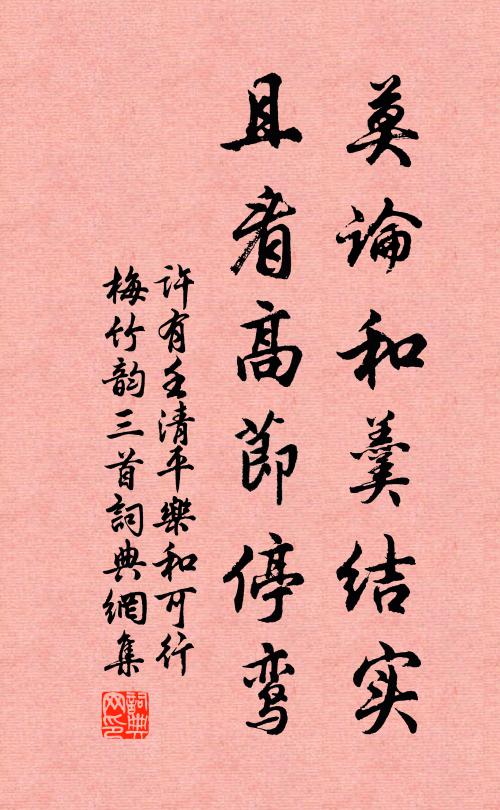 莫论和羹结实
且看高節停鸾
許有壬清平樂和可行
梅竹韵三首詞典網集
詞典网印